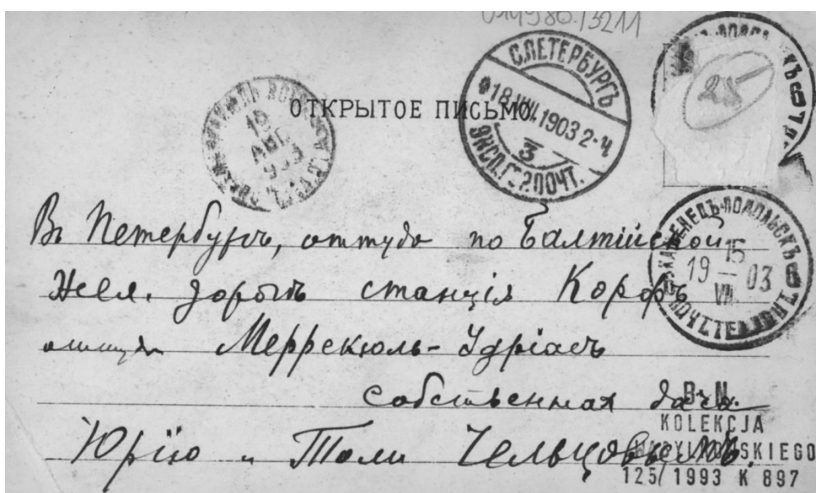 014980.13211
ОТКРЫТОЕ ПИСЬМО.
С.ПЕТЕРБУРГЪ
18.VIII.1903 2-Ч
3
ЭКСП.ГОР.ПОЧТ.
19
АВГ
1903
25
КАМЕНЕЦЪ-ПОДОЛЬСКЪ
15
19 — 03
VIII
ПОЧ.ТЕЛ.КОНТ.
Въ Петербургъ, оттуда по Балтійской
Жел. дорогѣ станція Корфъ
Меррекюль-Удріасъ
собственная дача
Юрію и Толи Чельцовымъ.
B. N.
KOLEKCJA
125/1993 K 897